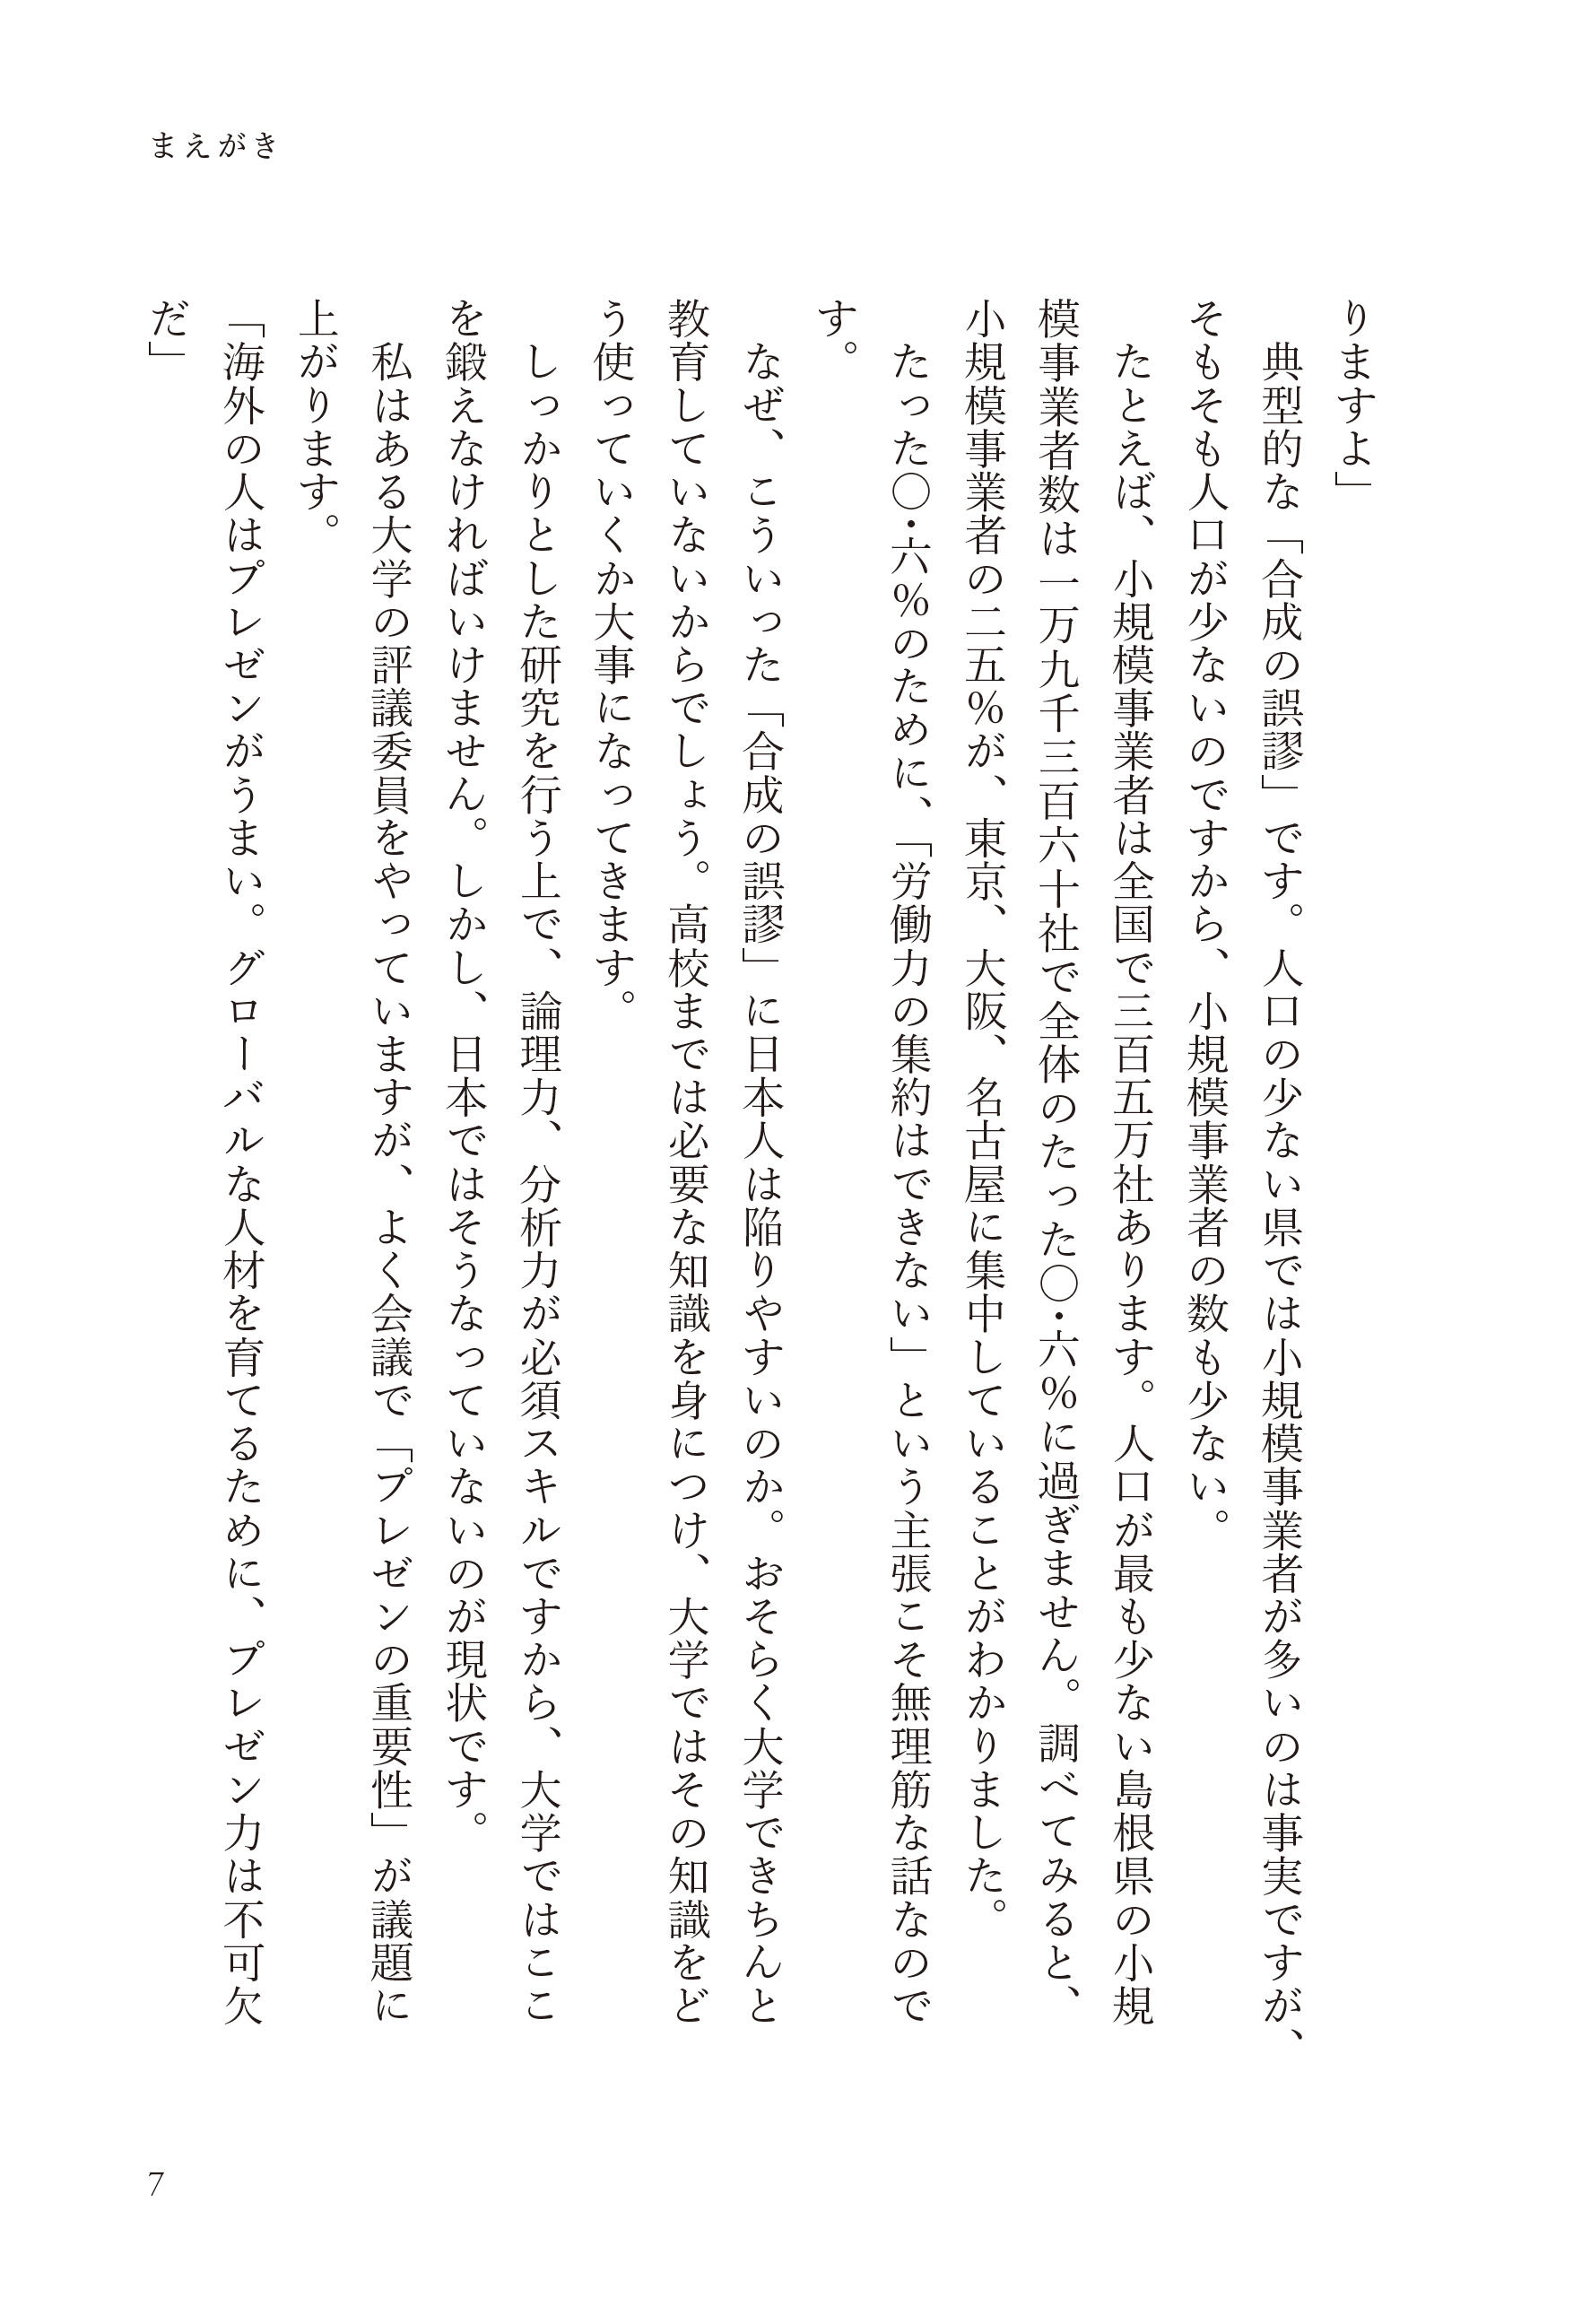 まえがき
りますよ」
　典型的な「合成の誤謬」です。人口の少ない県では小規模事業者が多いのは事実ですが、
そもそも人口が少ないのですから、小規模事業者の数も少ない。
　たとえば、小規模事業者は全国で三百五万社あります。人口が最も少ない島根県の小規
模事業者数は一万九千三百六十社で全体のたった〇・六％に過ぎません。調べてみると、
小規模事業者の二五％が、東京、大阪、名古屋に集中していることがわかりました。
　たった〇・六％のために、「労働力の集約はできない」という主張こそ無理筋な話なので
す。
　なぜ、こういった「合成の誤謬」に日本人は陥りやすいのか。おそらく大学できちんと
教育していないからでしょう。高校までは必要な知識を身につけ、大学ではその知識をど
う使っていくか大事になってきます。
　しっかりとした研究を行う上で、論理力、分析力が必須スキルですから、大学ではここ
を鍛えなければいけません。しかし、日本ではそうなっていないのが現状です。
　私はある大学の評議委員をやっていますが、よく会議で「プレゼンの重要性」が議題に
上がります。
「海外の人はプレゼンがうまい。グローバルな人材を育てるために、プレゼン力は不可欠
だ」
7